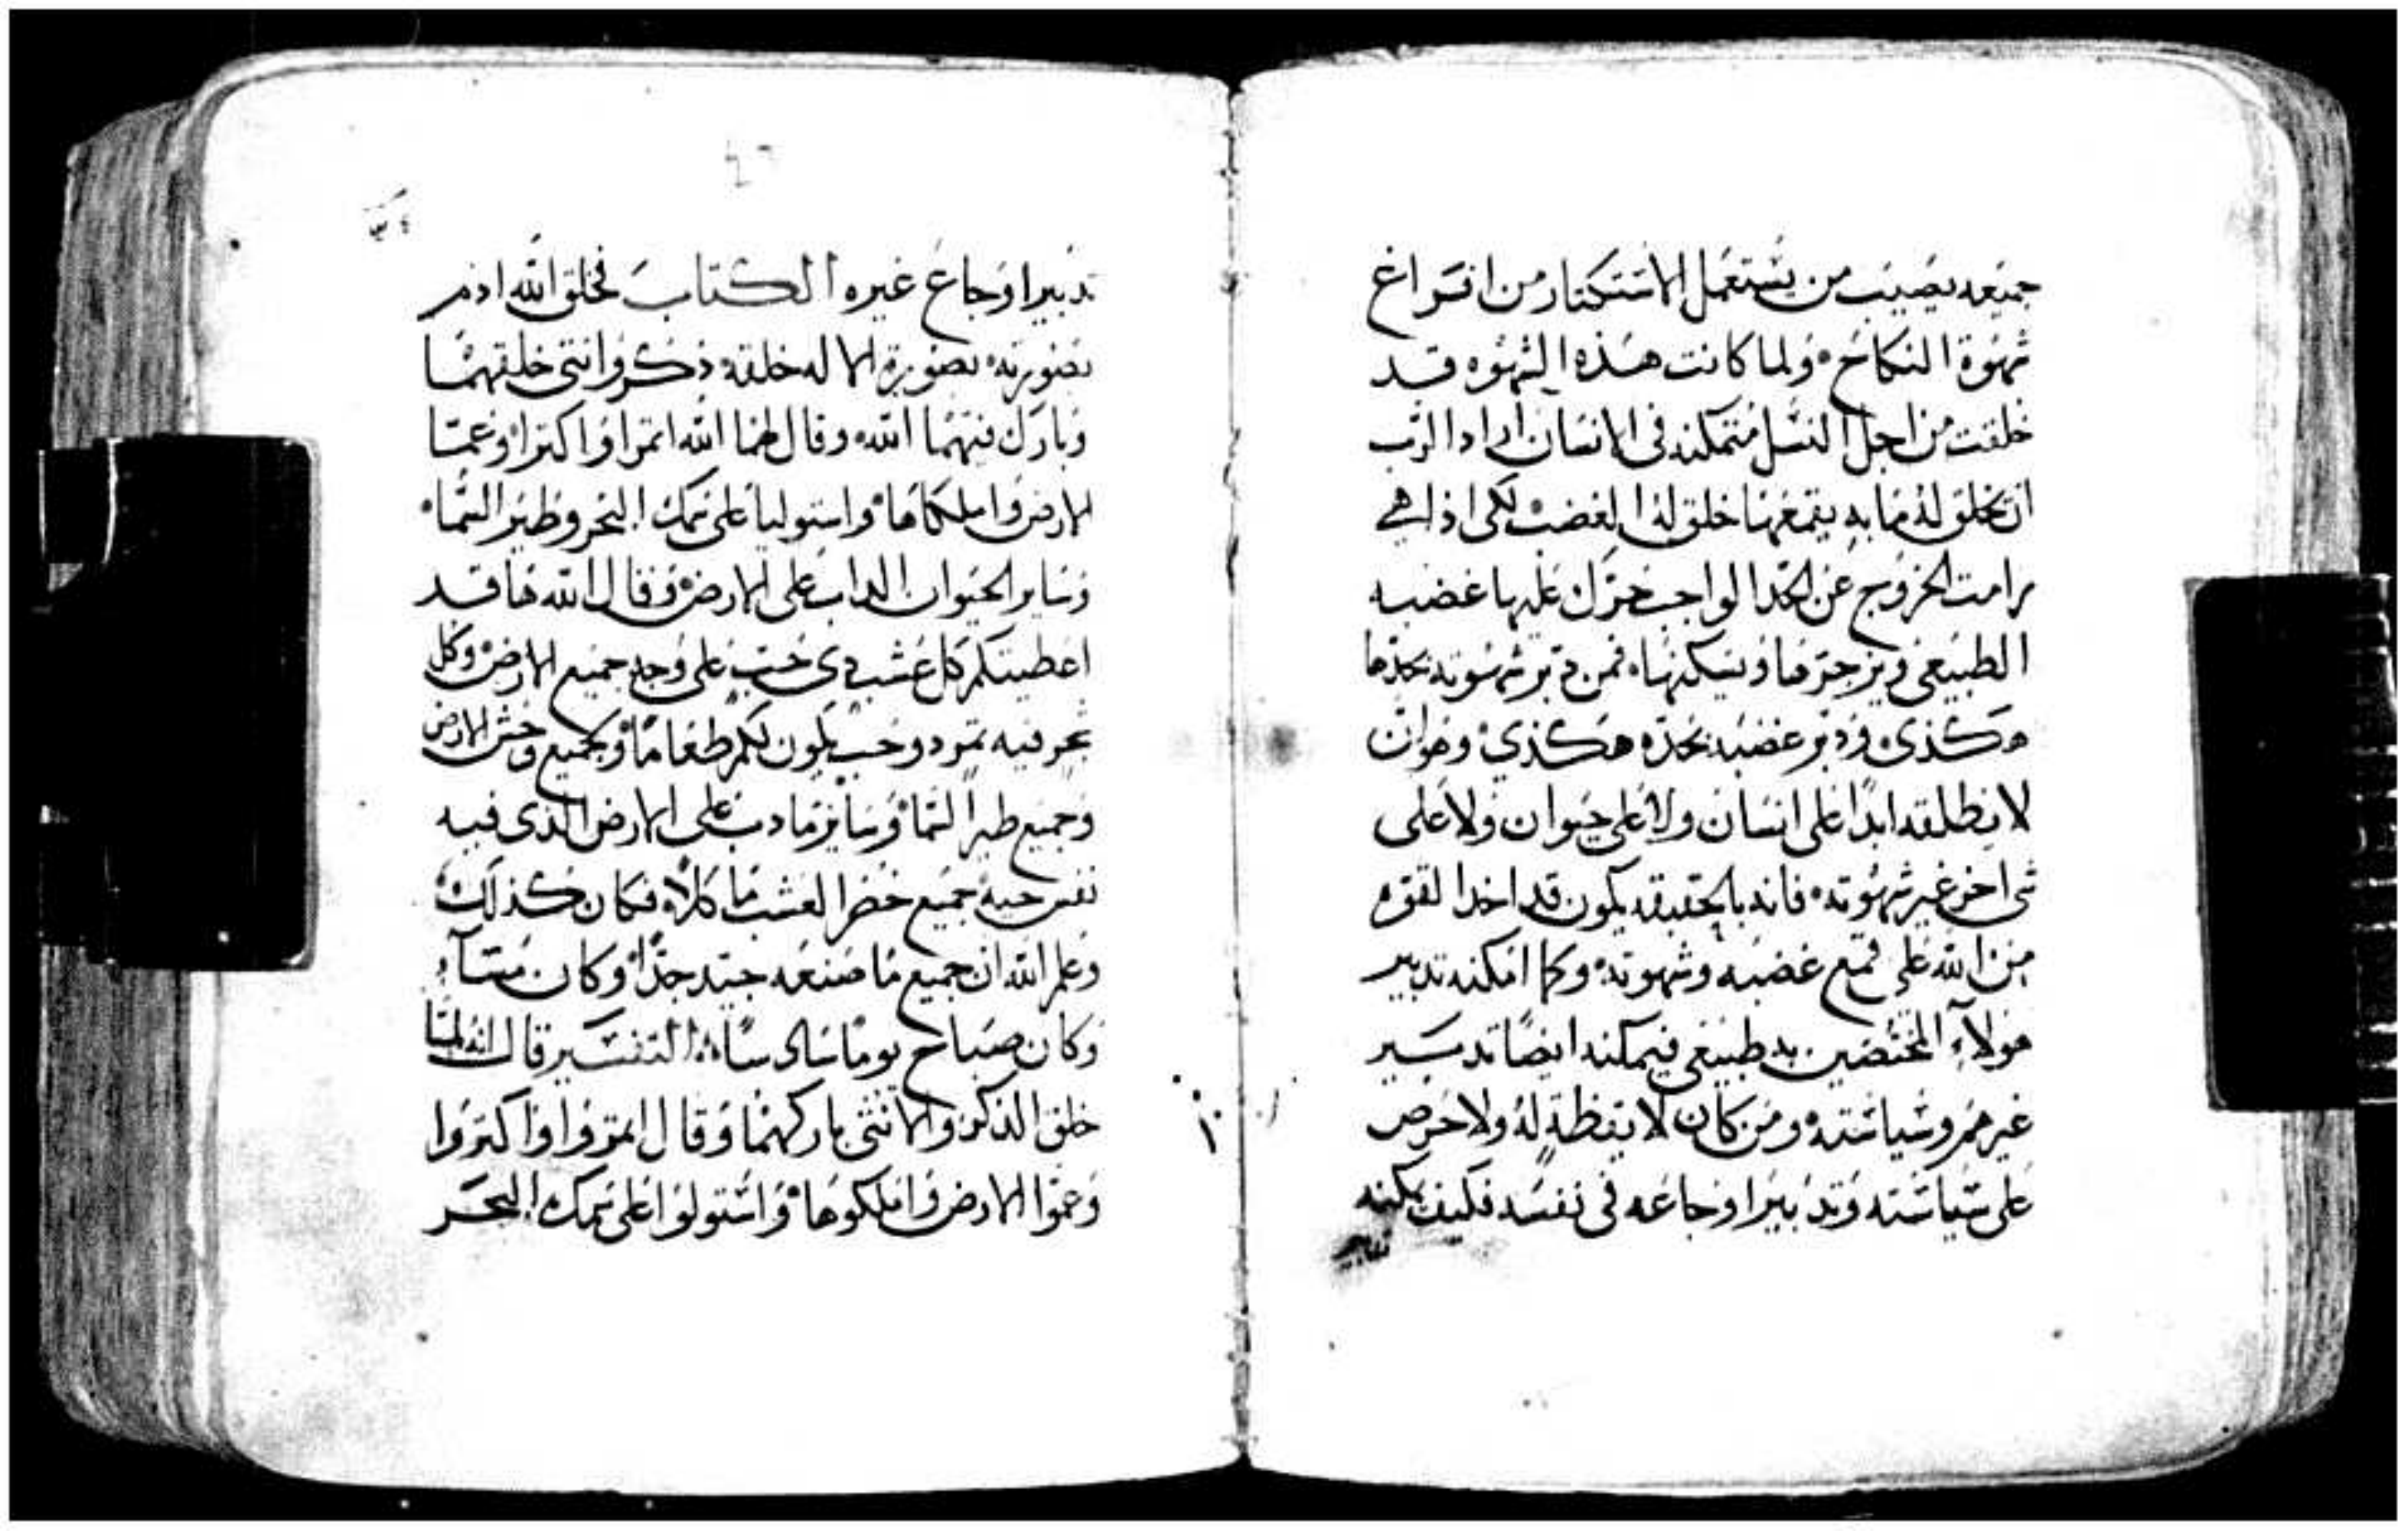 جميعه يصيب من يستعمل الاستكتار من افراغ
شهوة النكاح ولما كانت هذه الشهوه قد
خلقت من اجل النسل متمكنه فى الانسان اراد الرب
ان يخلق له ما به يقمعها خلق له الغضب لكى اذا هى
رامت الخروج عن الحد الواجب حرك عليها غضبه
الطبيعى ويزجرها ويسكنها فمن دبر شهوته بحدها
هكذى ودبر غضبه بحده هكذي وهو ان
لا يطلقه ابدًا على انسان ولا على حيوان ولا على
شى اخر غير شهوته فانه بالحقيقه يكون قد اخد القوه
من الله على قمع غضبه وشهوته وكما امكنه تدبير
هولآء المختصين به طبيعى فيمكنه ايضًا تدبير
غيرهم وسياسته ومن كان لا يقظة له ولا حرص
على سياسته وتدبير اوجاعه فى نفسه فكيف يمكنه
تدبير
تدبير اوجاع غيره الكتاب فخلق الله ادم
بصورته بصورة الاله خلقه ذكر وانتى خلقهما
وبارك فيهما الله وقال لهما الله انموا واكتروا وعمّا
الارض واملكاها واستوليا على سمك البحر وطير السما
وساير الحيوان الداب على الارض وقال الله ها قد
اعطيتكم كل عشب دى حب على وجه جميع الارض وكل
شجر فيه تمر دو حب يكون لكم طعامًا ولجميع وحش الارض
وجميع طير السما وساير ما دب على الارض الذى فيه
نفس حيه جميع خضر العشب ماكلاً فكان كذلك
وعلم الله ان جميع ما صنعه جيد جدًا وكان مسآء
وكان صباح يومًا سادسًا التفسير قال انه لما
خلق الذكر والانثى باركهما وقال انموا واكتروا
وعموا الارض واملكوها واستولوا على سمك البحر